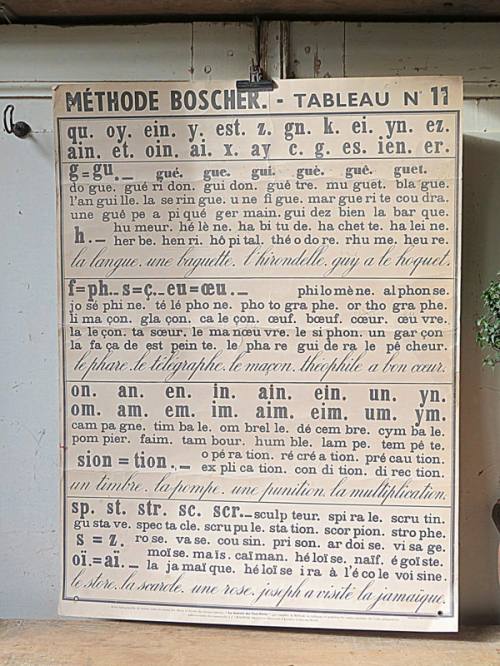 MÉTHODE BOSCHER. - TABLEAU N° 11
qu. oy. ein. y. est. z. gn. k. ei. yn. ez.
ain. et. oin. ai. x. ay c. g. es. ien. er.
g=gu._ gué. gue. gui. guè. guê. guet.
do gue. gué ri don. gui don. guê tre. mu guet. bla gue.
l'an gui lle. la se rin gue. u ne fi gue. mar gue ri te cou dra.
une guê pe a pi qué ger main. gui dez bien la bar que.
hu meur. hé lè ne. ha bi tu de. ha chet te. ha lei ne.
h._ her be. hen ri. hô pi tal. thé o do re. rhu me. heu re.
la langue. une baguette. l'hirondelle. guy a le hoquet.
f=ph._ s=ç._ eu=œu._ phi lo mè ne. al phon se.
jo sé phi ne. té lé pho ne. pho to gra phe. or tho gra phe.
li ma çon. gla çon. ca le çon. œuf. bœuf. cœur. œu vre.
la le çon. ta sœur. le ma nœu vre. le si phon. un gar çon
la fa ça de est pein te. le pha re gui de ra le pê cheur.
le phare. le télégraphe. le maçon. théophile a bon cœur.
on. an. en. in. ain. ein. un. yn.
om. am. em. im. aim. eim. um. ym.
cam pa gne. tim ba le. om brel le. dé cem bre. cym ba le.
pom pier. faim. tam bour. hum ble. lam pe. tem pê te.
sion = tion._ o pé ra tion. ré cré a tion. pré cau tion.
ex pli ca tion. con di tion. di rec tion.
un timbre. la pompe. une punition. la multiplication.
sp. st. str. sc. scr._ sculp teur. spi ra le. scru tin.
gu sta ve. spec ta cle. scru pu le. sta tion. scor pion. stro phe.
s = z. ro se. va se. cou sin. pri son. ar doi se. vi sa ge.
moï se. ma ïs. ca ïman. hé lo ï se. naïf. é go ïs te.
oï.=aï._ la ja maï que. hé lo ï se i ra à l'é co le voi sine.
le store. la scarole. une rose. joseph a visité la jamaïque.